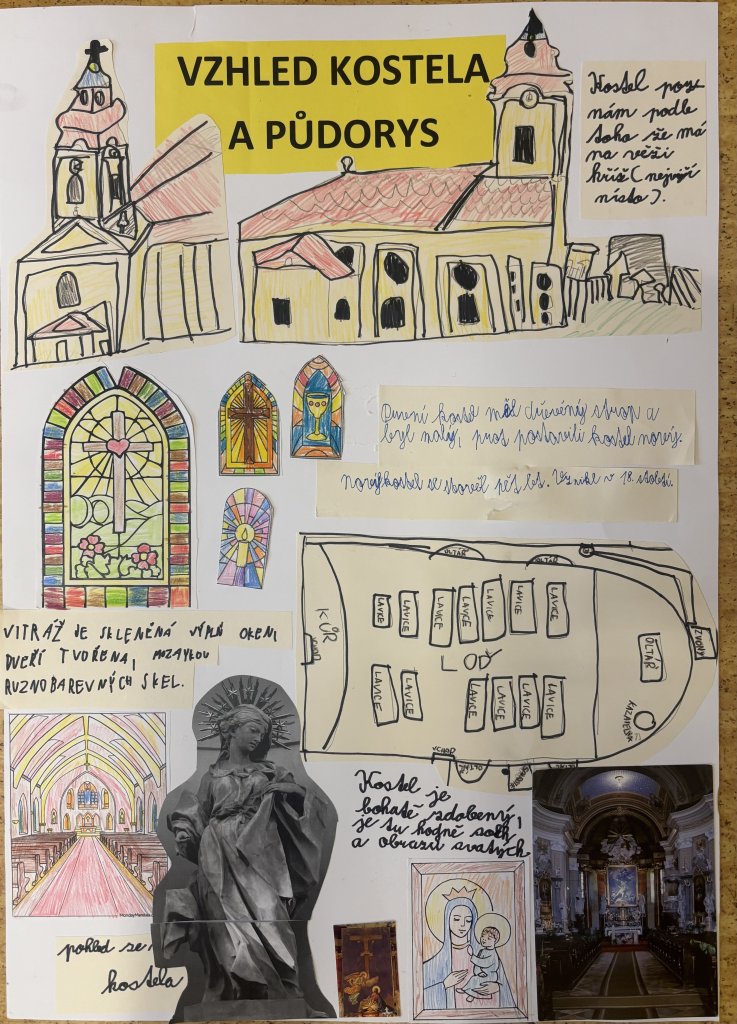 VZHLED KOSTELA
A PŮDORYS
Kostel poz
nám podle
toho že má
na věži
kříž (nejvyší
místo).
kostel měl dřevěný strop a
byl malý, proto postavili kostel nový.
Nový kostel se stavěl pět let. Vznikl v 18. století.
VITRÁŽ JE SKLENĚNÁ VÝPLŇ OKEN,
DVEŘÍ TVOŘENÁ, MOZAYKOU
RUZNOBAREVNÝCH SKEL.
OLTÁŘ
OLTÁŘ
KŮR
LAVICE
LAVICE
LAVICE
LAVICE
LAVICE
LAVICE
LAVICE
LOĎ
OLTÁŘ
ZVONY
LAVICE
LAVICE
LAVICE
LAVICE
LAVICE
LAVICE
KAZATELNA
VCHOD
OLTÁŘ
Kostel je
bohatě zdobený,
je tu hodně soch
a obrazu svatých
pohled se
kostela